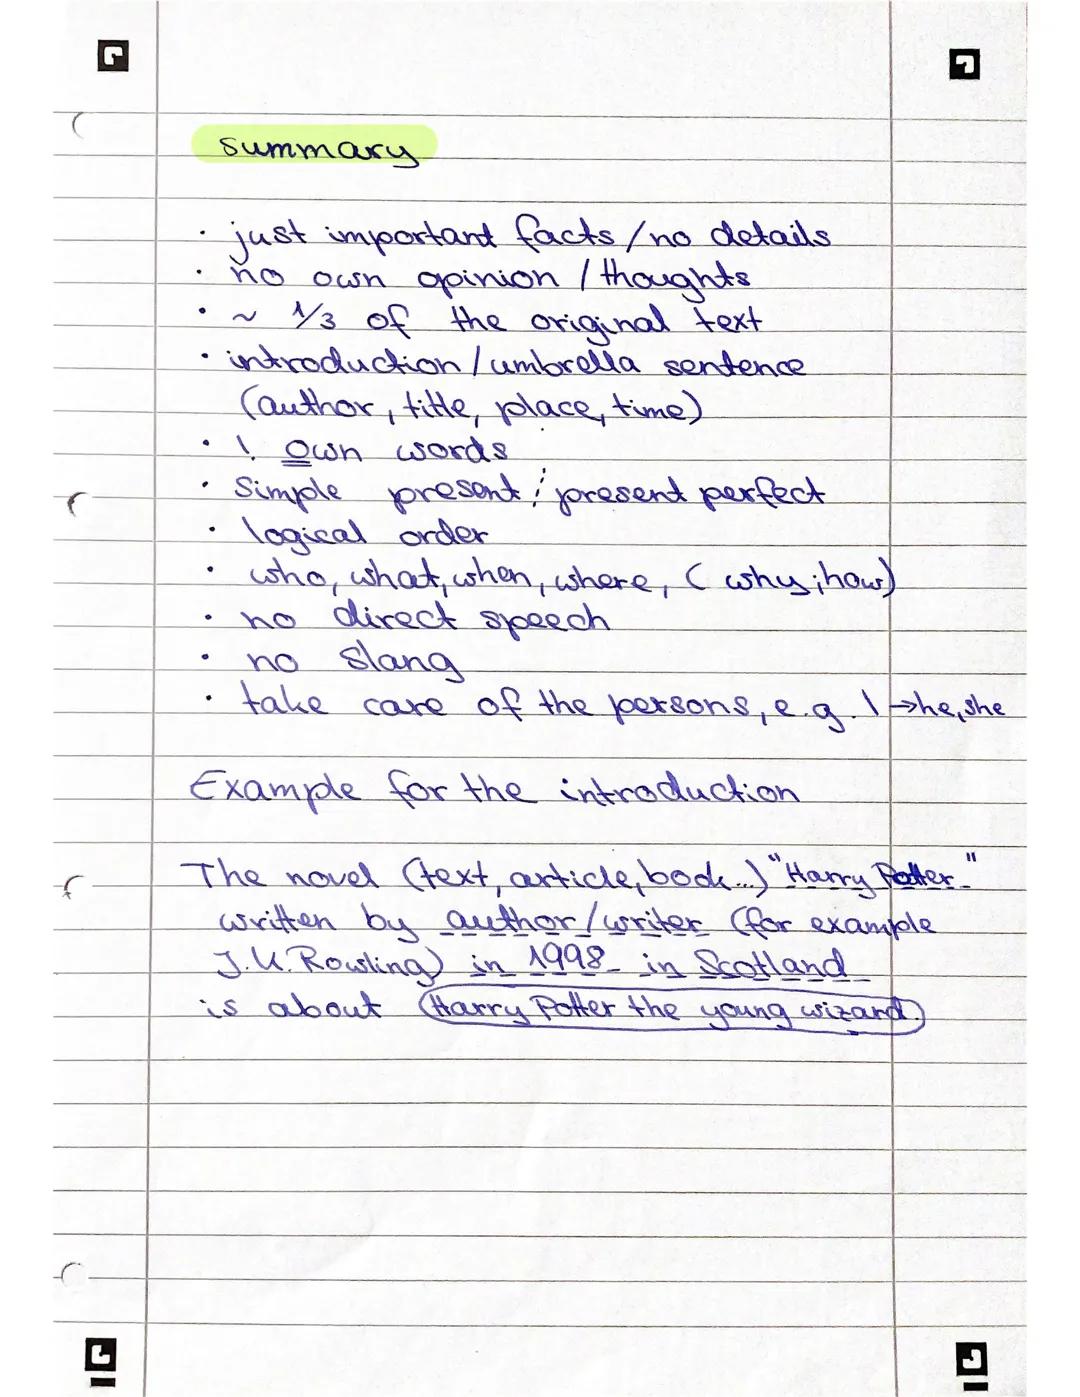 summary
· just important facts / no details
· no own opinion / thoughts
· ~ 1/3 of the original text
· introduction / umbrella sentence
(author, title, place, time)
· ! Own words
· Simple present ; present perfect
· logical order
· who, what, when, where, (why; how)
· no direct speech
· no slang
· take care of the persons, e.g. I → he, she
Example for the introduction
The novel (text, article, book...) "Harry Potter"
written by author/writer (for example
J.K. Rowling) in 1998 in Scotland
is about (Harry Potter the young wizard.)